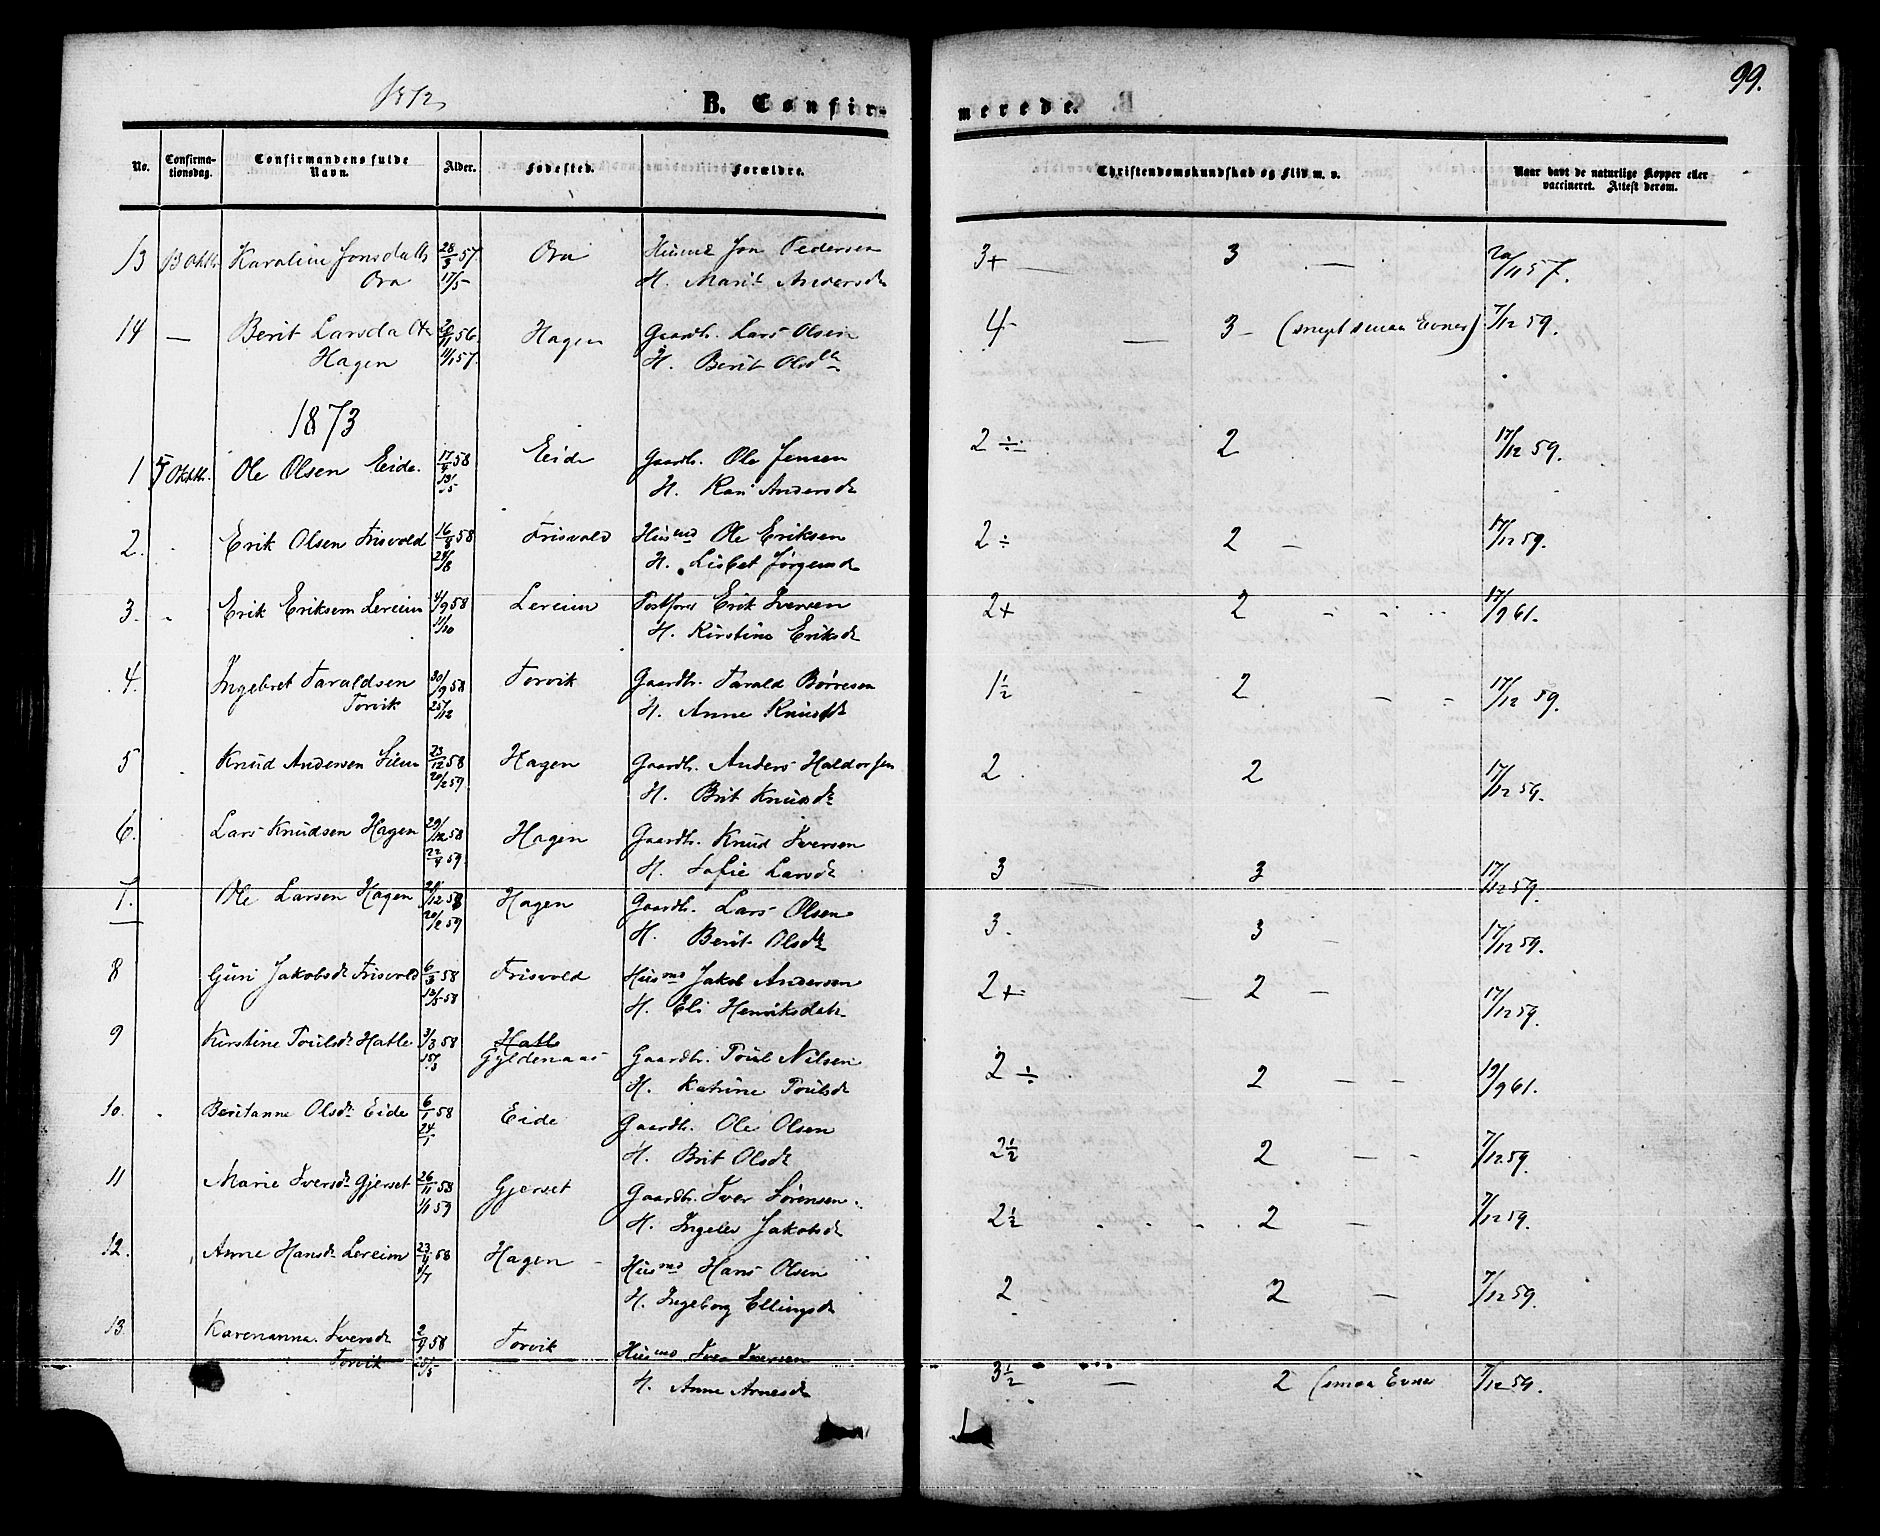 1872
99.
B. Confirmerede.
No. Confirmationsdag. Confirmandens fulde Navn. Alder. Fødested. Forældre. Christendomskundskab og Flid m. v. Naar havt de naturlige Kopper eller vaccineret. Attest derom.
13 13 Oktbr. Karoline Jonsdattr 28/3 57. Ora Husmd Jon Pedersen 3+ — 3 — 20/11 57.
Ora 17/5 H. Marit Andersdr
14 — Berit Larsdattr 20/11 56. Hagen Gaardbr. Lars Olsen 4- — 3- (meget smaa Evner) 7/12 59.
Hagen 11/1 57. H. Berit Olsdtr
1873
1 5 Oktbr. Ole Olsen Eide. 17/4 58 Eide Gaardbr. Ole Jensen 2 ÷ 2 17/12 59.
13/5 H. Kari Andersdr
2. Erik Olsen Frisvold 16/8 58 Frisvold Husmd Ole Eriksen 2 ÷ 2 — 17/12 59.
24/8 H. Lisbet Jørgensd
3. Erik Eriksen Lereim 4/9 58 Lereim Erik Iversen 2+ 2 17/9 61.
11/10 H. Kirstine Eriksdr
4. Ingebret Taraldsen 30/9 58 Torvik Gaardbr. Tarald Børresen 1½ 2 17/12 59.
Torvik 25/12 H. Anne Knudsdr
5 Knud Andersen 23/12 58 Hagen Gaardbr. Anders Haldorsen 2 2 17/12 59.
20/2 59 H. Brit Knudsdr
6. Lars Knudsen Hagen 29/12 58 Hagen Gaardbr. Knud Iversen 3 — 3 17/12 59.
22/4 59 H. Sofie Larsdr
7. Ole Larsen Hagen /12 58 Hagen Gaardbr. Lars Olsen 3. 3 17/12 59.
20/2 59 H. Berit Olsdr
8 Guri Jakobsdr Frisvold 6/3 58 Frisvold Husmd Jakob Andersen 2+ — 2 — 17/12 59.
13/5 58 H. Eli Henriksdatr
9 Kirstine Poulsdr Hatle 3/3 58 Hatle Gyldenaas Gaardbr. Poul Nilsen 2 ÷ 2 — — 19/9 61.
15/5 H. Katrine Poulsdr
10. Beritanne Olsdr Eide 6/1 58 Eide Gaardbr. Ole Olsen 2½ 2 — 7/12 59.
24/1 H. Brit Olsdr
11 Marie Iversdr Gjerset 26/11 58 Gjerset Gaardbr. Iver Sørensen 2½ 2 — 7/12 59.
1/1 59 H. Ingelev Jakobsdr
12. Anne Hansdr Lereim 23/4 58 Hagen Husmd Hans Olsen 2 2 — 7/12 59.
/7 H. Ingeborg Ellingsdr
13. Karenanna Iversdr 2/4 58 Torvik Husmd Iver Iversen 3½ — 2 (smaa Evner 7/12 59.
Torvik 25/5 H. Anne Arnesdr